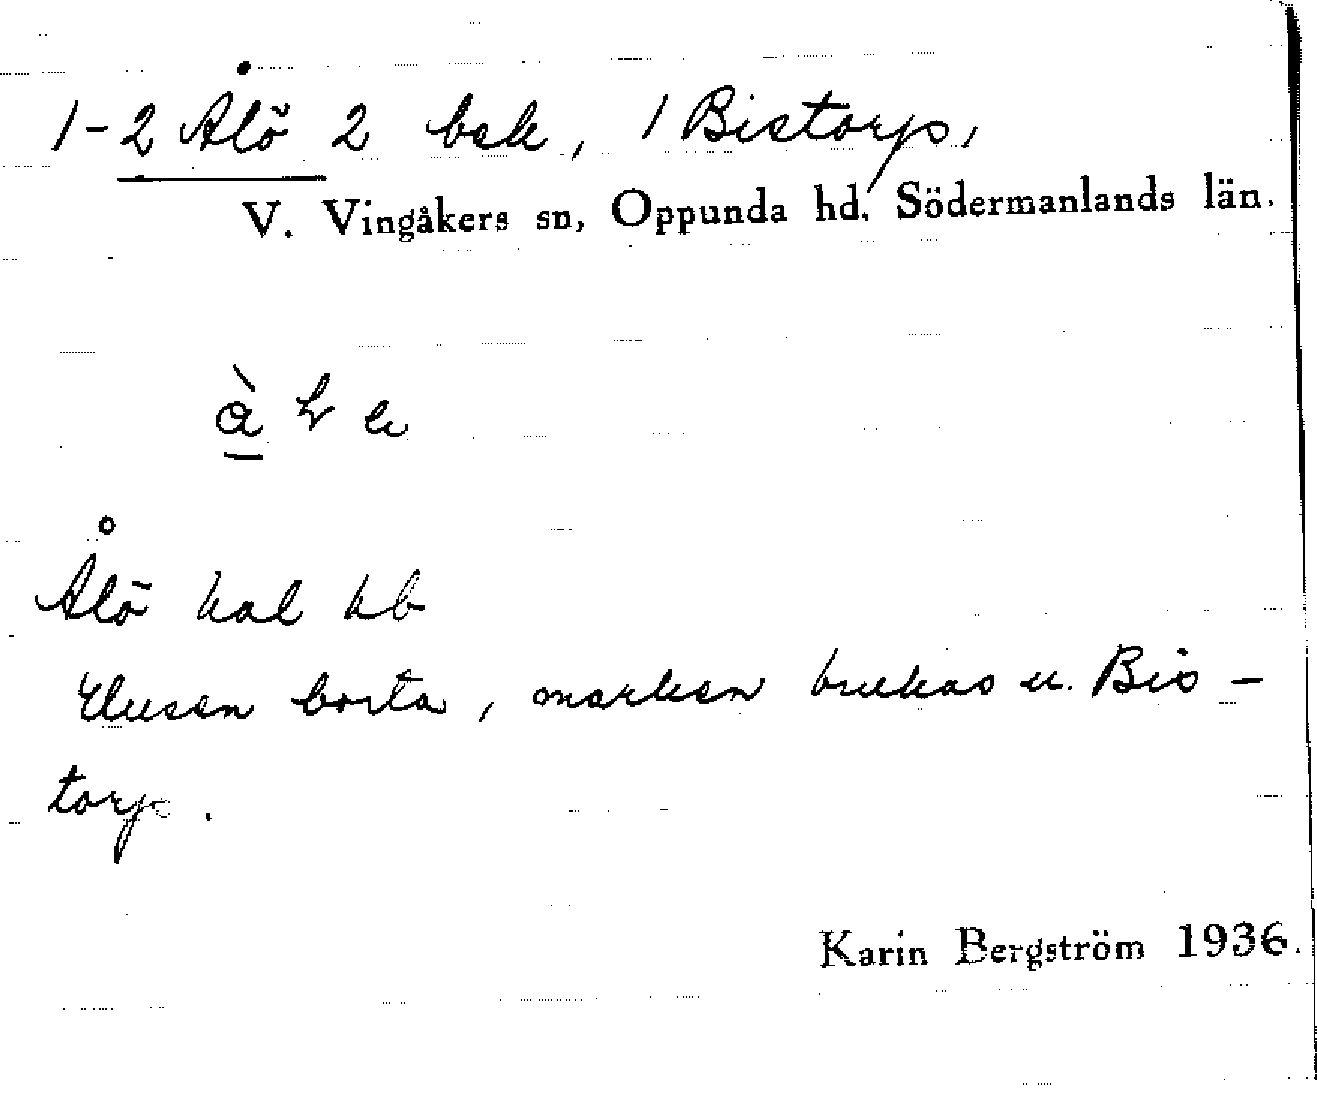 1-2 Ålö 2 bek, 1 Bistorp,
V. Vingåkers sn, Oppunda hd, Södermanlands län.
Ålö kal kb
Husen borta, marken brukas u. Bis-
torp.
Karin Bergström 1936.